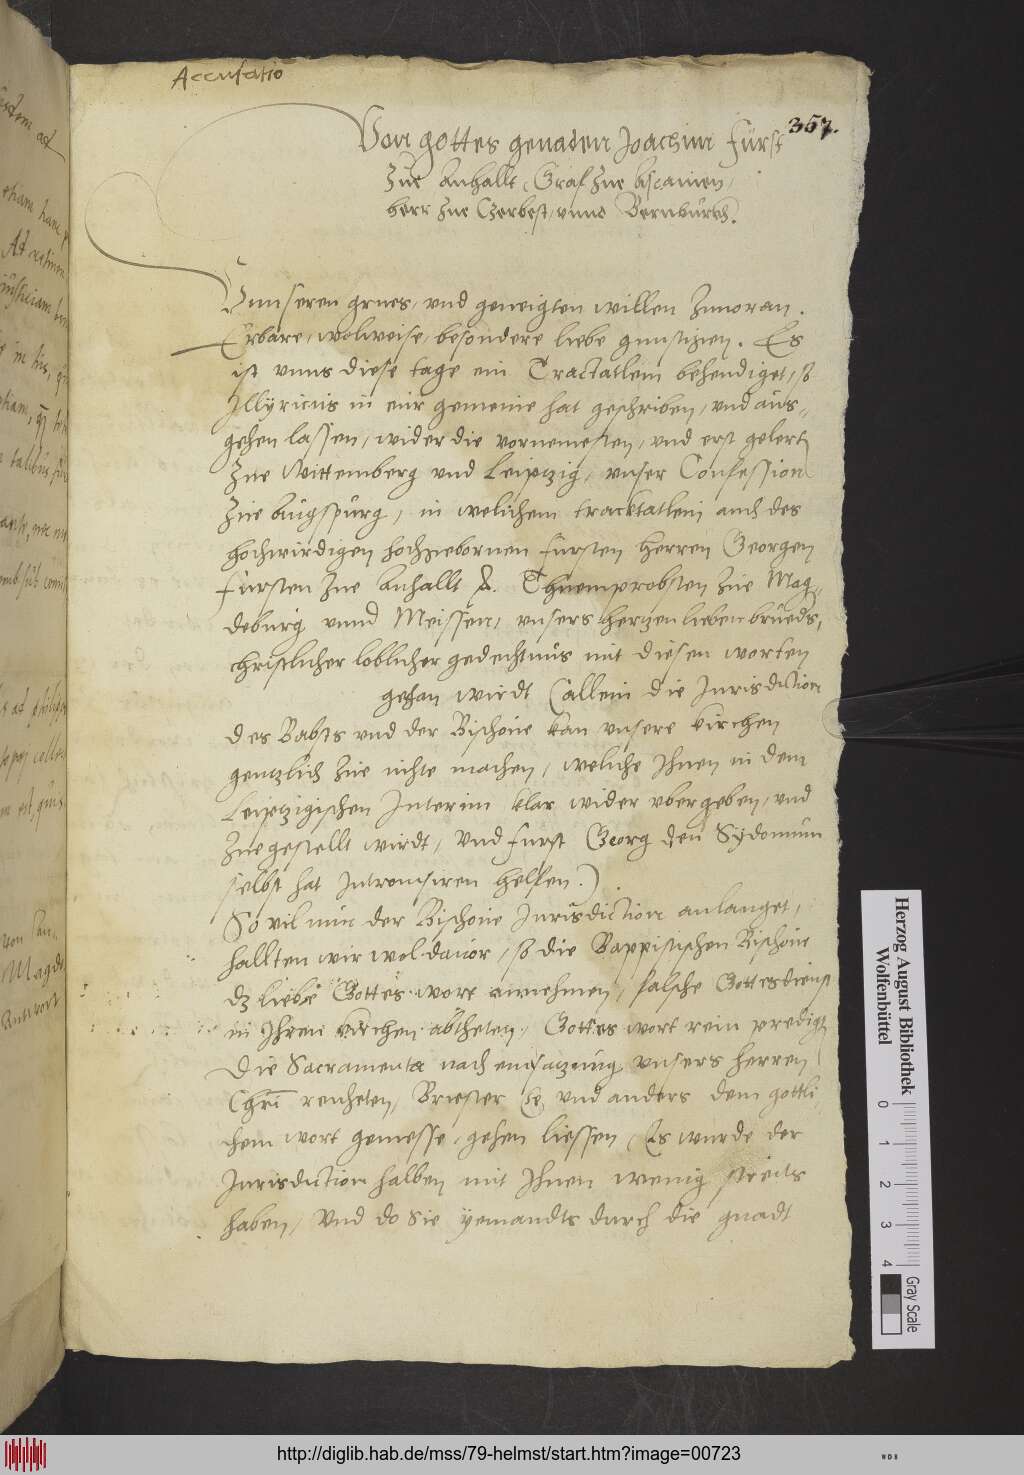 Accusatio
357.
Von gottes genaden Joachim Fürst
Zue Anhallt, Graf Zue Ascanien,
herr Zue Czerbest, unnd Bernburgk.
Vnnseren grues, vnd geneigten willen Zuuoran.
Erbare, wolweise, besondere liebe gunstigen. Es
ist vnns diese tage ein Tractatlein behendiget, so
Illyricus in eur gemeine hat geschriben, vnd aus-
gehen lassen, wider die vornemesten, vnd erst gelert
Zue Wittemberg vnd Leiptzig, vnser Confession
Zue Augspurg, in welichem tracktatlein auch des
hochwirdigen hochgebornen fursten herren Georgen
Fursten Zue Anhallt &. Thuemprobsten Zue Mag-
deburg vnnd Meissen, vnsers hertzen lieben brueds,
christlicher loblicher gedechtnus mit diesen worten
gethan wirdt (allein die Jurisdiction
des Babsts vnd der Bischoue kan vnsere kirchen
gentzlich Zue nichte machen, weliche Ihnen in dem
Leiptzigischen Interim klar wider vbergeben, vnd
Zuegestellt wirdt, Vnd furst Georg den Sydonium
selbst hat Introniisiren helfen.)
So vil nun der Bischoue Jurisdiction anlanget,
hallten wir wol dauor, so die Bappistischen Bischoue
dz liebe Gottes wort annehmen, falsche Gottesdienst
in Ihren kirchen abtheten, Gottes wort rein predigt
Die Sacramenta nach einsatzung vnsers herren
Chri reicheten, Briester vnd anders dem gottli-
chem wort gemesse, gehen liessen, Es wurde der
Jurisdiction halben mit Ihnen wenig streits
haben, Vnd do Sie yemandts durch die gnadt
Herzog August Bibliothek
Wolfenbüttel
0 1 2 3 4
Gray Scale
http://diglib.hab.de/mss/79-helmst/start.htm?image=00723